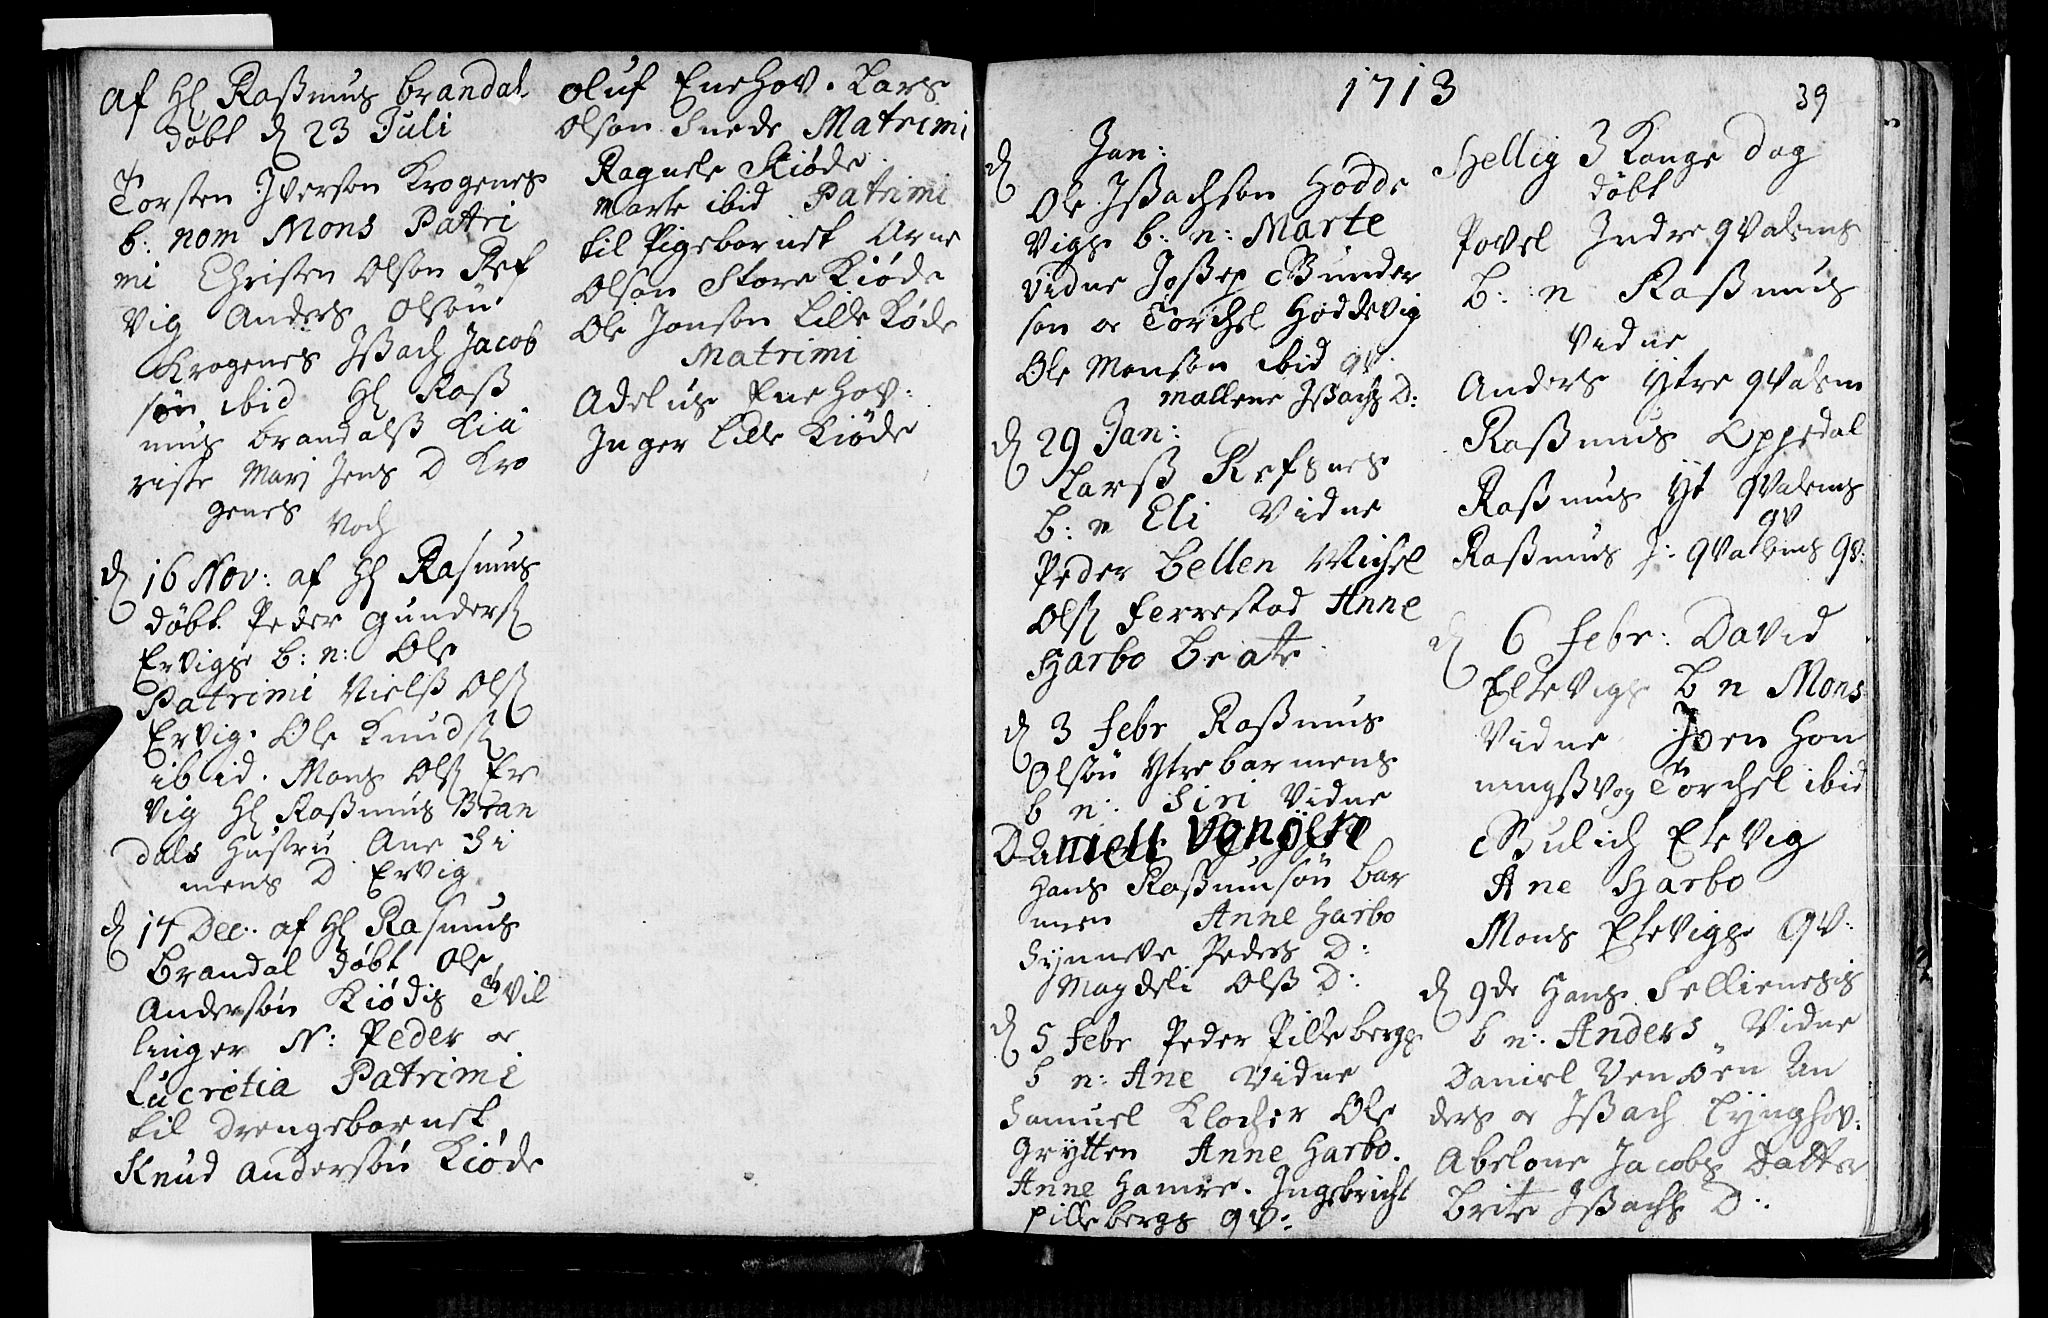 af Hl Rasmus brandal
døbt d 23 Juli
Torsten Iverson Krogenes
b: nom Mons Patri
mi Christen Olson Ref
vig Anders Olsøn
Krogenes Issach Jacob
søn ibid Hl Rass
mus brandalss
Mari Jens D Kro
genes
Noch
d 16 Nov: af Hl Rasmus
døbt Peder gunders
Ervigs b: n: Ole
Patrimi Nielss Ols
Ervig. Ole Knuds
ibid. Mons Ols Er
vig Hl Rasmus Bran
dals Hustru Ane Si
mens D Ervig
d 14 Dec. af Hl Rasmus
brandal døbt Ole
Andersøn Kiødis Tvil
linger N: Peder oc
Lucretia Patrimi
til Drengebarnet
Knud Andersøn Kiøde
oluf Enehov. Lars
Olson Snede Matrimi
Ragnele Kiøde
Marte ibid Patrimi
til Pigebarnet Arne
Olson Store Kiøde
Ole Jonson Lille Køde
Matrimi
Adelus Enehov:
Inger Lille Kiøde
1713
39
d Jan:
Ole Issachson Hodde
vigs b: n: Marte
vidne Jossep Gunder
son oc Torchel Hoddevig
Ole Monson ibid qv:
Mallene Issachs D:
d 29 Jan:
Larss Refsnes
b: n Eli Vidne
Peder Letten Michel
Ols Ferrestad Anne
Harbo Beate
d 3 Febr Rasmus
Olsøn Ytre barmens
b n: Siri Vidne
Daniell Venøen
Hans Rasmusøn bar
men Anne Harbo
Synneve Peders D:
Magdeli Olss D:
d 5 Febr Peder Pillebergs
b n: Ane Vidne
Samuel Klocher Ole
Grytten Anne Harbo.
Anne Hamre. Ingebricht
Pillebergs qv:
Hellig 3 Konge Dag
døbt
Povel Indre qvalems
b: n Rasmus
Vidne
Anders Ytre qvalem
Rasmus Oppedal
Rasmus Yt qvalems
qv
Rasmus J: qvalems qv:
d 6 Febr: David
Eltevigs b n Mons
Vidne Joen Hon
ningssvog Torchel ibid
Gulich Eltevig
Ane Harbo
Mons Eltevigs qv:
d 9de Hans Sellienesis
b n: Anders Vidne
Daniel Venøen An
ders oc Issach Lynghov:
Abelone Jacobs Datter
Brite Issachs D: